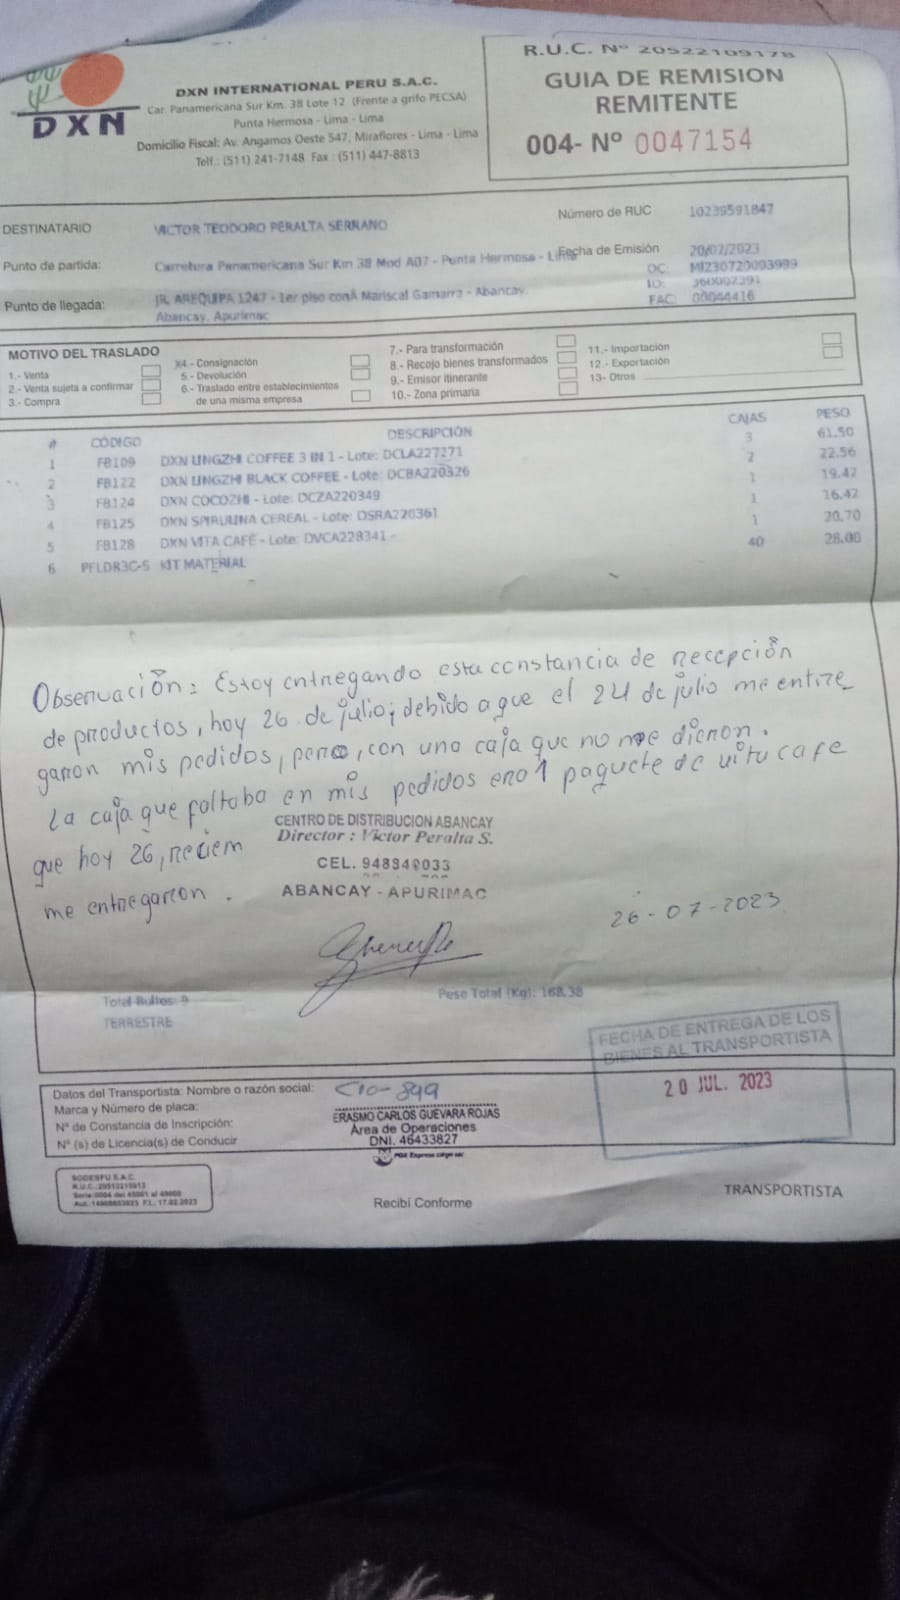 DXN
DXN INTERNATIONAL PERU S.A.C.
Car. Panamericana Sur Km. 38 Lote 12 (Frente a grifo PECSA)
Punta Hermosa - Lima - Lima
Domicilio Fiscal: Av. Angamos Oeste 547, Miraflores - Lima - Lima
Telf.: (511) 241-7148 Fax : (511) 447-8813
R.U.C. Nº 20522109178
GUIA DE REMISION
REMITENTE
004- Nº 0047154
DESTINATARIO VICTOR TEODORO PERALTA SERRANO Número de RUC 10239591847
Punto de partida: Carretera Panamericana Sur Km 38 Mod A07 - Punta Hermosa - Lima Fecha de Emisión 20/07/2023
OC: MIZ30720003999
ID: 360002391
Punto de llegada: JR. AREQUIPA 1247 - 1er piso conÂ Mariscal Gamarra - Abancay. FAC: 00044416
Abancay, Apurimac
MOTIVO DEL TRASLADO
1.- Venta
2.- Venta sujeta a confirmar
3.- Compra
X4.- Consignación
5.- Devolución
6.- Traslado entre establecimientos
de una misma empresa
7.- Para transformación
8.- Recojo bienes transformados
9.- Emisor itinerante
10.- Zona primaria
11.- Importación
12.- Exportación
13- Otros
# CÓDIGO DESCRIPCIÓN CAJAS PESO
1 FB109 DXN LINGZHI COFFEE 3 IN 1 - Lote: DCLA227271 3 61.50
2 FB122 DXN LINGZHI BLACK COFFEE - Lote: DCBA220326 2 22.56
3 FB124 DXN COCOZHI - Lote: DCZA220349 1 19.42
4 FB125 DXN SPIRULINA CEREAL - Lote: DSRA220361 1 16.42
5 FB128 DXN VITA CAFÉ - Lote: DVCA228341 - 1 20.70
6 PFLDR3C-S KIT MATERIAL 40 28.00
Observación: Estoy entregando esta constancia de recepción
de productos, hoy 26 de julio; debido a que el 24 de julio me entre
garon mis pedidos, pero, con una caja que no me dieron.
La caja que faltaba en mis pedidos era 1 paquete de vitu cafe
que hoy 26, reciem
me entregaron.
CENTRO DE DISTRIBUCION ABANCAY
Director : Victor Peralta S.
CEL. 948340033
ABANCAY - APURIMAC
26-07-2023
Total Bultos: 9
TERRESTRE
Peso Total (Kg): 168.38
FECHA DE ENTREGA DE LOS
BIENES AL TRANSPORTISTA
20 JUL. 2023
Datos del Transportista: Nombre o razón social:
Marca y Número de placa:
Nº de Constancia de Inscripción:
Nº (s) de Licencia(s) de Conducir
C10-899
ERASMO CARLOS GUEVARA ROJAS
Área de Operaciones
DNI. 46433827
Express cargo sac
SODESFU S.A.C.
Serie: 0004 del 45001 al 49000
Recibí Conforme
TRANSPORTISTA